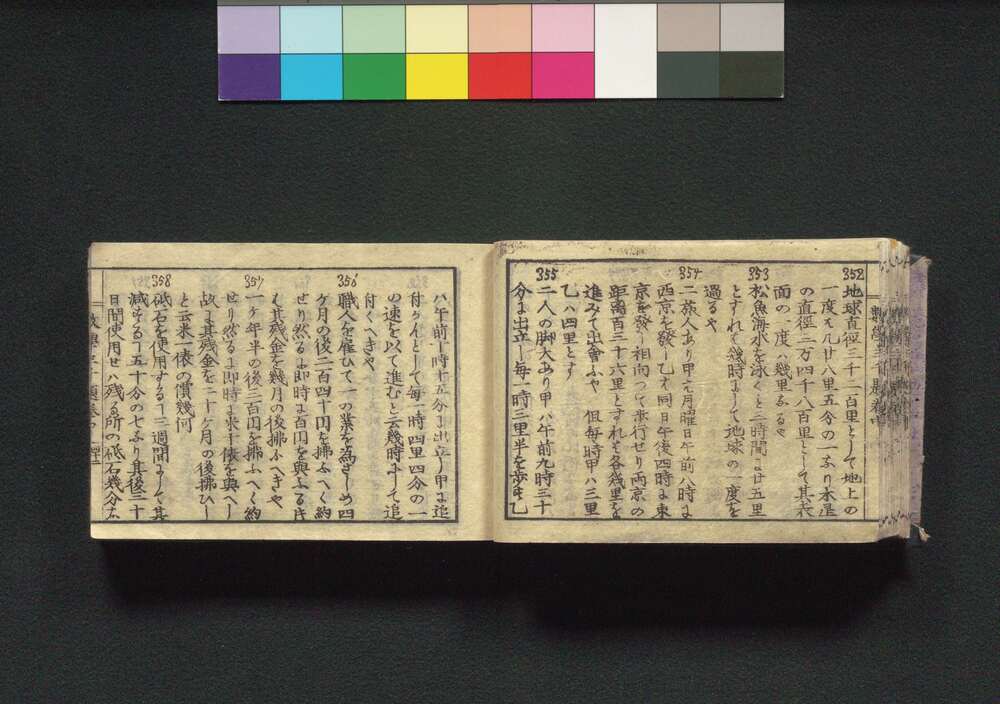 352
地球直徑三千二百里として地上の
一度を凡廿八里五分の一なり木星
の直徑二万四千八百里として其表
面の一度ハ幾里なるや
353
松魚海水を泳くと二時間に廿五里
とすれバ幾時にして地球の一度を
過るや
354
二旅人あり甲ハ月曜日午前八時に
西京を發し乙ハ同日午後四時に東
京を發し相向つて歩行せり両京の
距離百三十六里とすれバ各幾里を
進みて出會ふや但毎時甲ハ三里
乙ハ四里とす
355
二人の脚夫あり甲ハ午前九時三十
分に出立し毎一時三里半を歩す乙
ハ午前十時十五分に出立し甲に追
付かんとして毎一時四里四分の一
の速を以て進むと云幾時にして追
付くへきや
356
職人を雇ひて一の業を為さしめ四
ヶ月の後二百四十円を拂ふへく約
せり然るに即時に百円を與ふるとき
ハ其残金を幾月の後拂ふへきや
357
一ヶ年半の後三百円を拂ふへく約
せり然るに即時に米十俵を與へし
故に其残金を二十ヶ月の後拂ひし
と云米一俵の價幾何
358
砥石を使用する一二週間にして其
減する五十分の七なり其後三十
日間使用せハ残る所の砥石幾分な